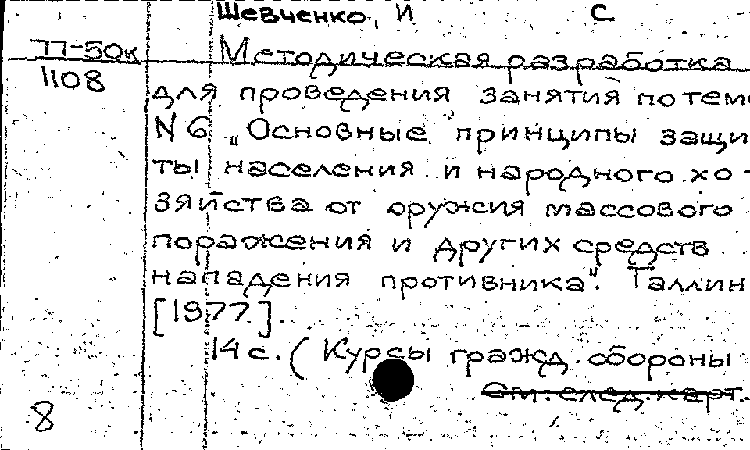 Шевченко, И С
77-50к Методическая разработка
1108 для проведения занятия по теме
N 6 „Основные принципы защи-
ты населения и народного хо-
зяйства от оружия массового
поражения и других средств
нападения противника". Таллин
[1977].
14 с. (Курсы гражд. обороны
См. след. карт.
8